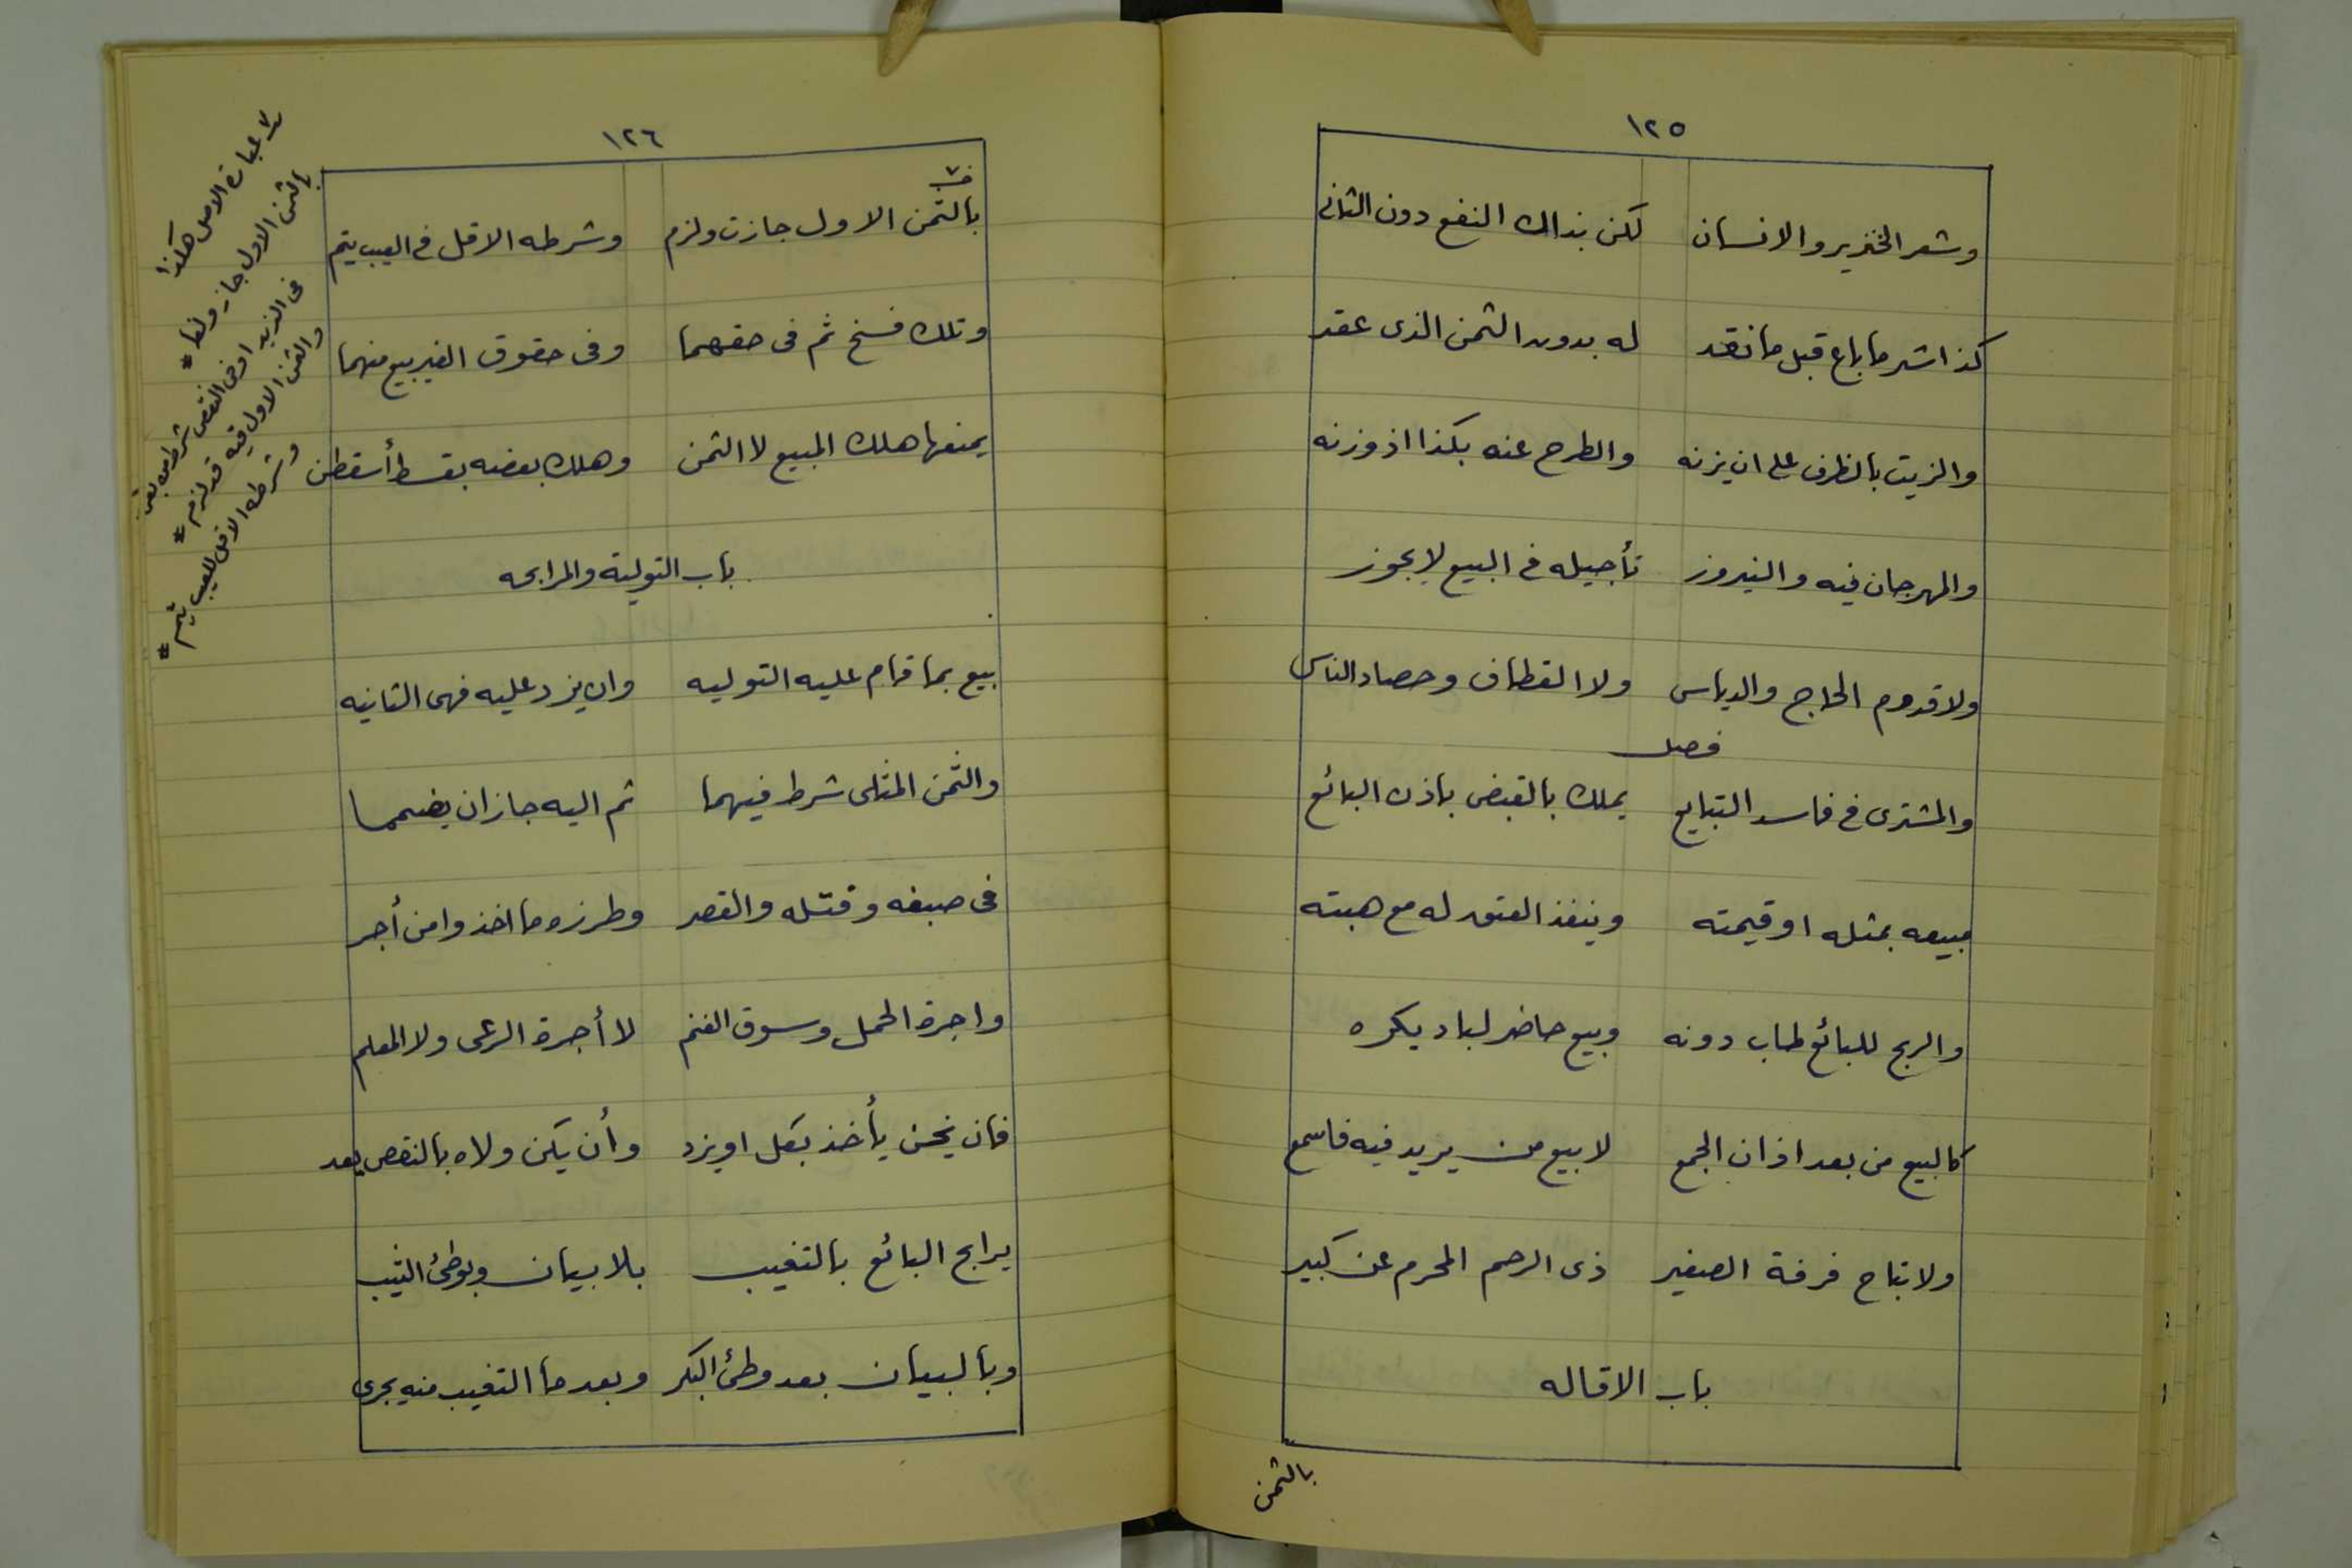 ١٢٥
وشعر الخنزير والانسان لكن بذاك النفع دون الثانى
كذا شر ما باع قبل ما نقد له بدون الثمن الذى عقد
والزيت بالظرف على ان يزنه والطرح عنه بكذا اذ وزنه
والمهرجان فيه والنيروز تأجيله فى البيع لا يجوز
ولا قدوم الحاج والدياس ولا القطاف وحصاد الناس
فصل
والمشترى فى فاسد التبايع يملك بالقبض باذن البائع
مبيعه بمثله او قيمته وينفذ العتق له مع هبته
والربح للبائع طاب دونه وبيع حاضر لباد يكره
كالبيع من بعد اذان الجمع لا بيع من يزيد فيه فاسمع
ولا تباح فرقة الصغير ذى الرحم المحرم عن كبير
باب الاقاله
بالثمن
١٢٦
بالثمن الاول جازت ولزم وشرطه الاقل فى العيب يتم
وتلك فسخ ثم فى حقهما وفى حقوق الغير بيع منهما
يمنعها هلك المبيع لا الثمن وهلك بعضه بقسط أسقطن
باب التولية والمرابحه
بيع بما قام عليه التوليه وان يزد عليه فهى الثانيه
والثمن المثلى شرط فيهما ثم اليه جاز ان يضمما
فى صبغه وفتله والقصر وطرزه ما اخذوا من أجر
واجرة الحمل وسوق الغنم لا أجرة الرعى ولا المعلم
فان يخن يأخذ بكل او يزد وأن يكن ولاه بالنقص يعد
يرابح البائع بالتغيب بلا بيان وبوطئ الثيب
وبالبيان بعد وطئ البكر وبعد ما التغيب منه يجرى
عبارة الاصل هكذا
بالثمن الاول جاز ولغا #
فى الزيد او فى النقص شرط من بغى
والثمن الاول فيه قد لزم #
وشرطه الاقل للعيب يتم #